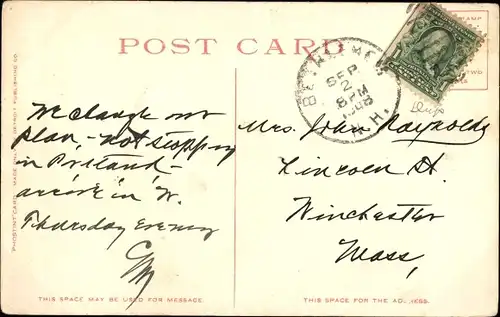 POST CARD
BETHLEHEM
SEP
2
8 PM
1908
N.H.
We change our
plan, - not stopping
in Portland -
arrive in W.
Thursday Evening
CM
Mrs. John Reynolds
Lincoln St.
Winchester
Mass,
THIS SPACE MAY BE USED FOR MESSAGE.
THIS SPACE FOR THE ADDRESS.